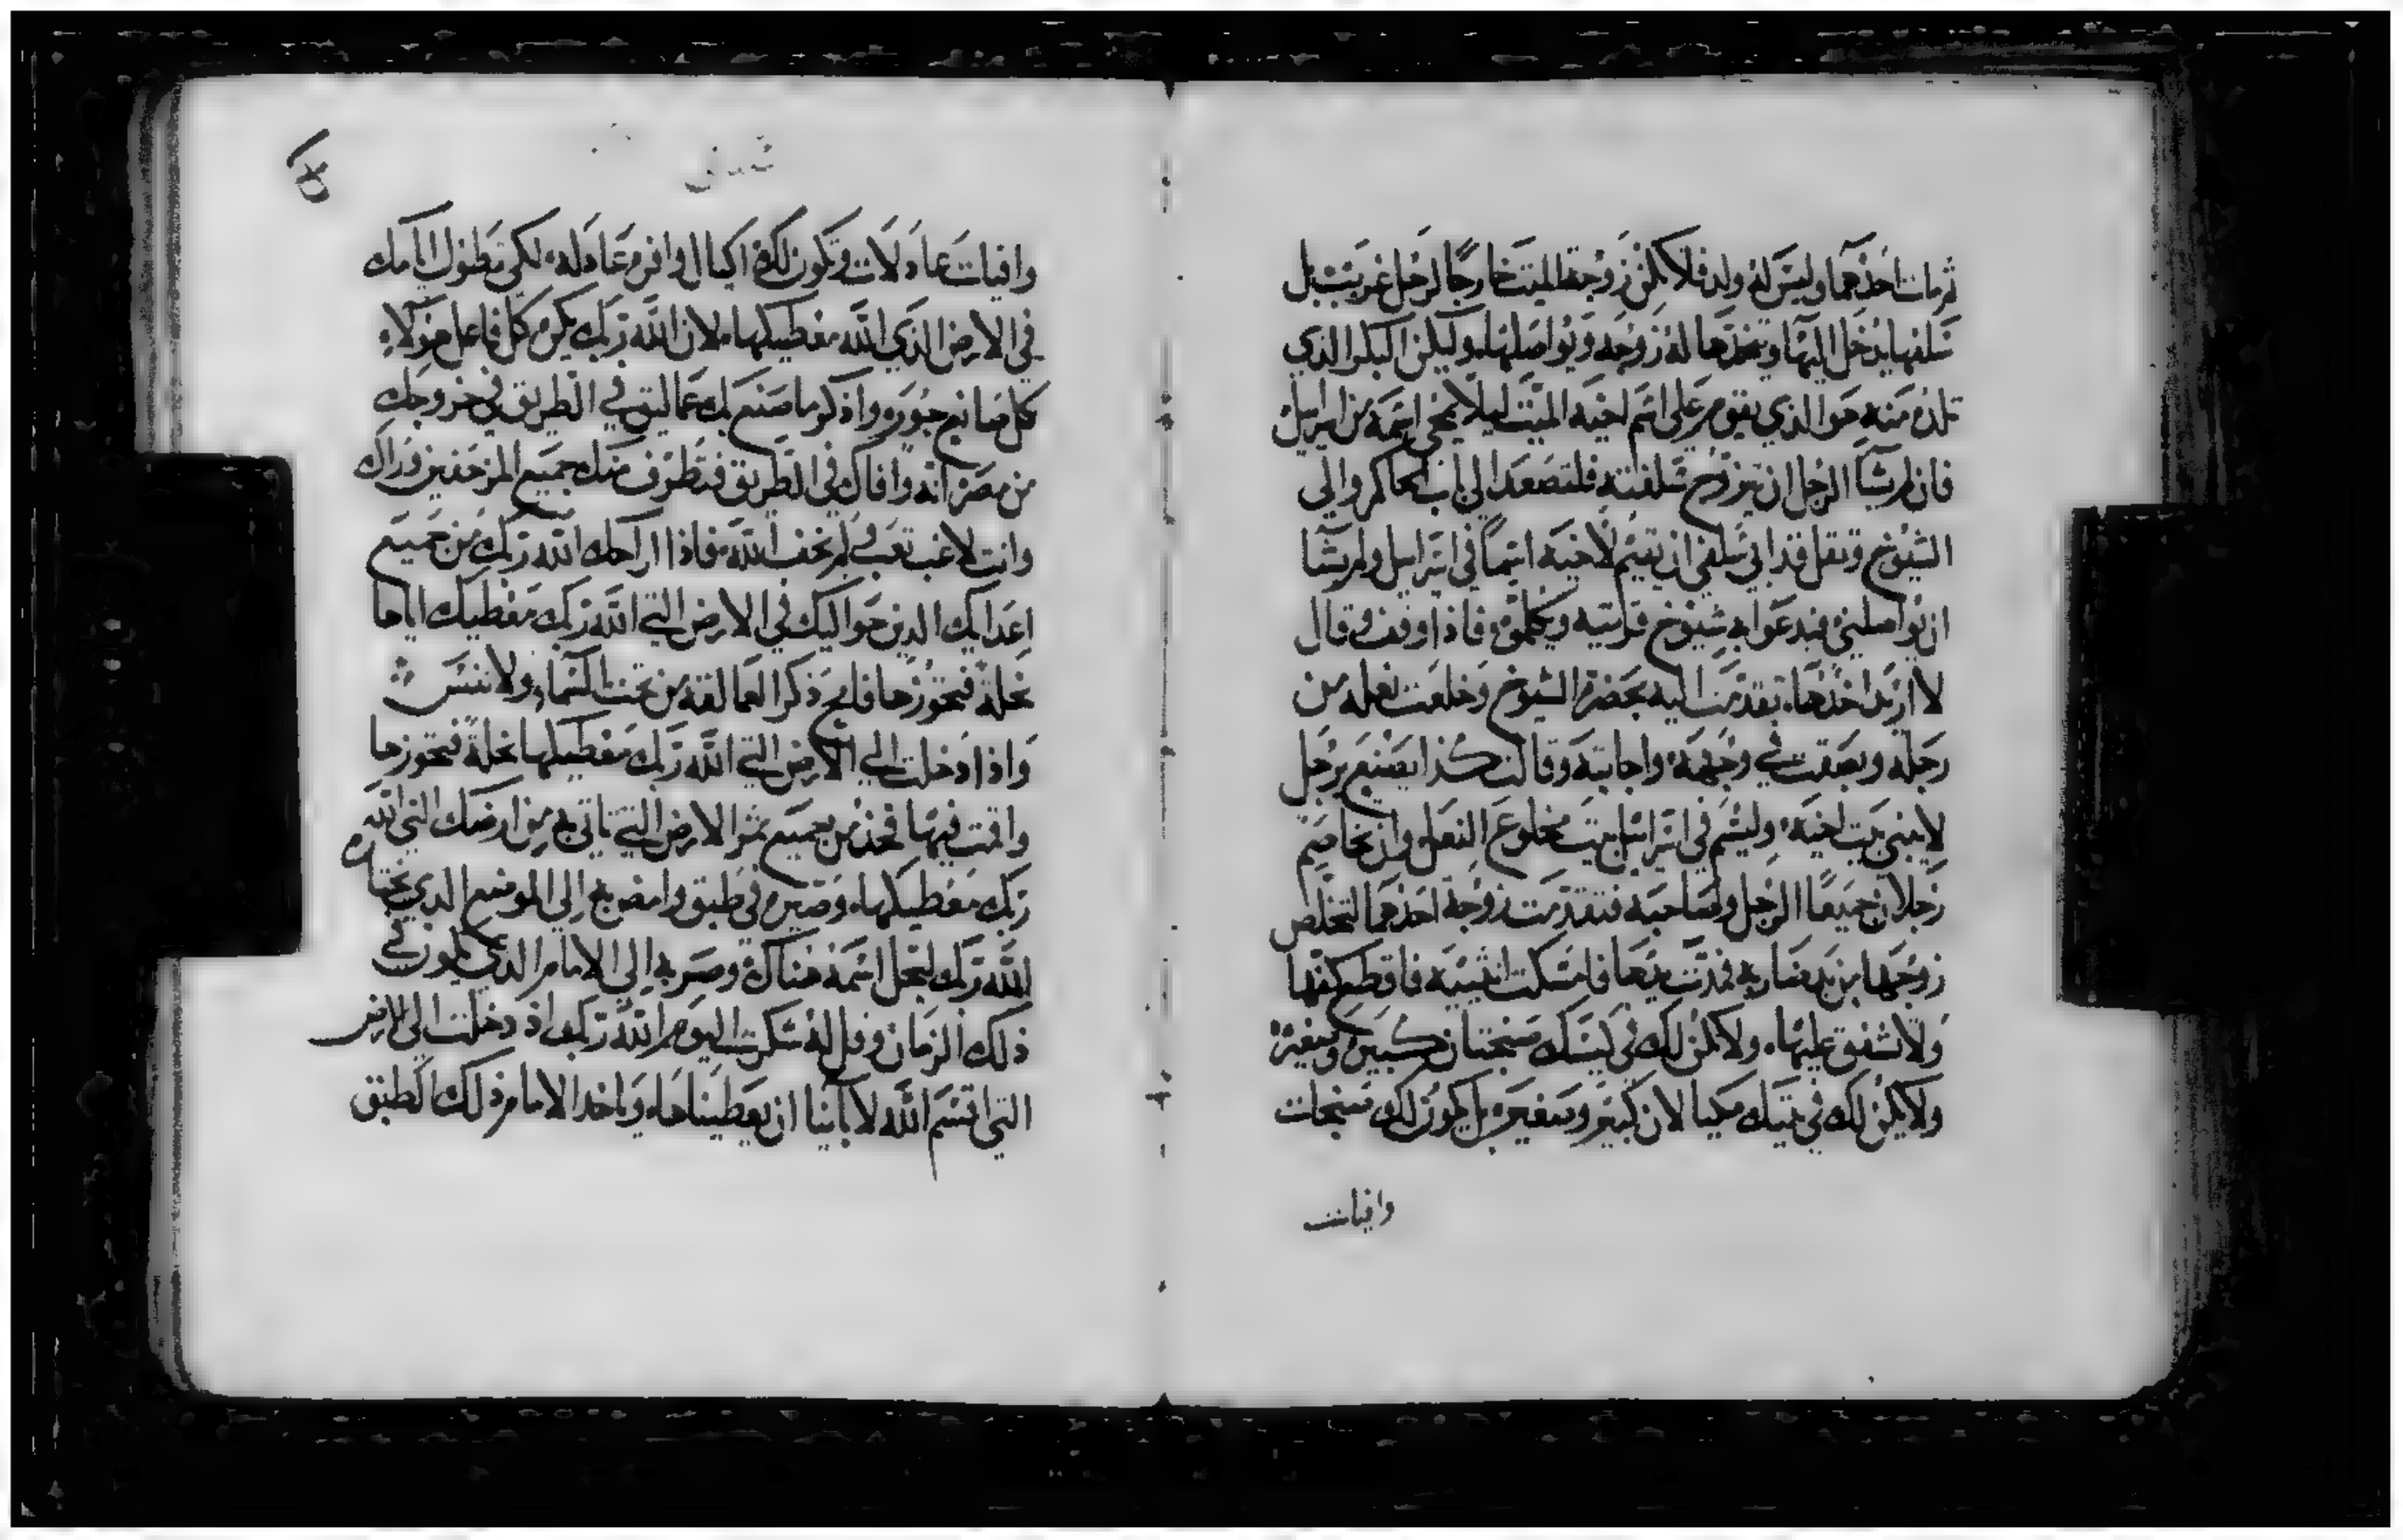 ثم مات احدهما وليس له ولد فلا تكن زوجة الميت خارجًا لرجل غريب بل
سلفها يدخل اليها ويتخذها له زوجه ويواصلها، وليكن البكر الذي
تلده منه هو الذي يقوم على اسم اخيه الميت ليلا يمحى اسمه من اسراييل
فان لم يشآ الرجل ان يتزوج سلفته فلتصعد الى باب الحاكم والى
الشيوخ وتقل قد ابى سلفي ان يقيم لاخيه اسمًا في اسراييل ولم يشآ
ان يواصلني فيدعوا به شيوخ قرايته ويكلموه فاذا وقف وقال
لا اريد اخذها، تقدمت اليه بحضرة الشيوخ وخلعت نعله من
رجله وبصقت في وجهه واجابته وقالت كذا يصنع برجل
لا يبني بيت اخيه وليسم في اسراييل بيت مخلوع النعل وان تخاصم
رجلان جميعًا الرجل وصاحبه فتقدمت زوجة احدهما لتخلص
زوجها من يد ضاربه فمدت يدها فامسكت انثييه فاقطع كفها
ولا تشفق عليها، ولا يكن لك في كيسك صنجتان كبيرة وصغيرة
ولا يكن لك في بيتك مكيالان كبير وصغير بل يكون لك صنجات
وافيات
وافيات عادلات وتكون لك اكيال وافره عادله لكي تطول ايامك
في الارض الذي الله معطيكها، لان الله ربك يكره كل فاعل هولاء
كل صانع جوره واذكر ما صنع بك عماليق في الطريق في خروجك
من مصر انه وافاك في الطريق فتطرف منك جميع المزحفين وراك
وانت لاغب تعب لم تخف الله، فاذا اراحك الله ربك من جميع
اعدايك الدين حواليك في الارض التي الله ربك معطيك اياها
نحلة فتحوزها فامح ذكر العمالقه من تحت السماء ولا تنس
واذا دخلت الي الارض التي الله ربك معطيكها نحلة فتحوزها
واقمت فيها فخذ من جميع ثمر الارض التي تاتي به من ارضك التي الله
ربك معطيكها، وصيره في طبق وامض به الى الموضع الدي يختاره
الله ربك ليحل اسمه هناك، وصر به الى الامام الدي يكون في
ذلك الزمان وقل له شكرت اليوم الله ربك اذ دخلت الى الارض
التي اقسم الله لاباينا ان يعطيناها، وياخد الامام ذلك الطبق